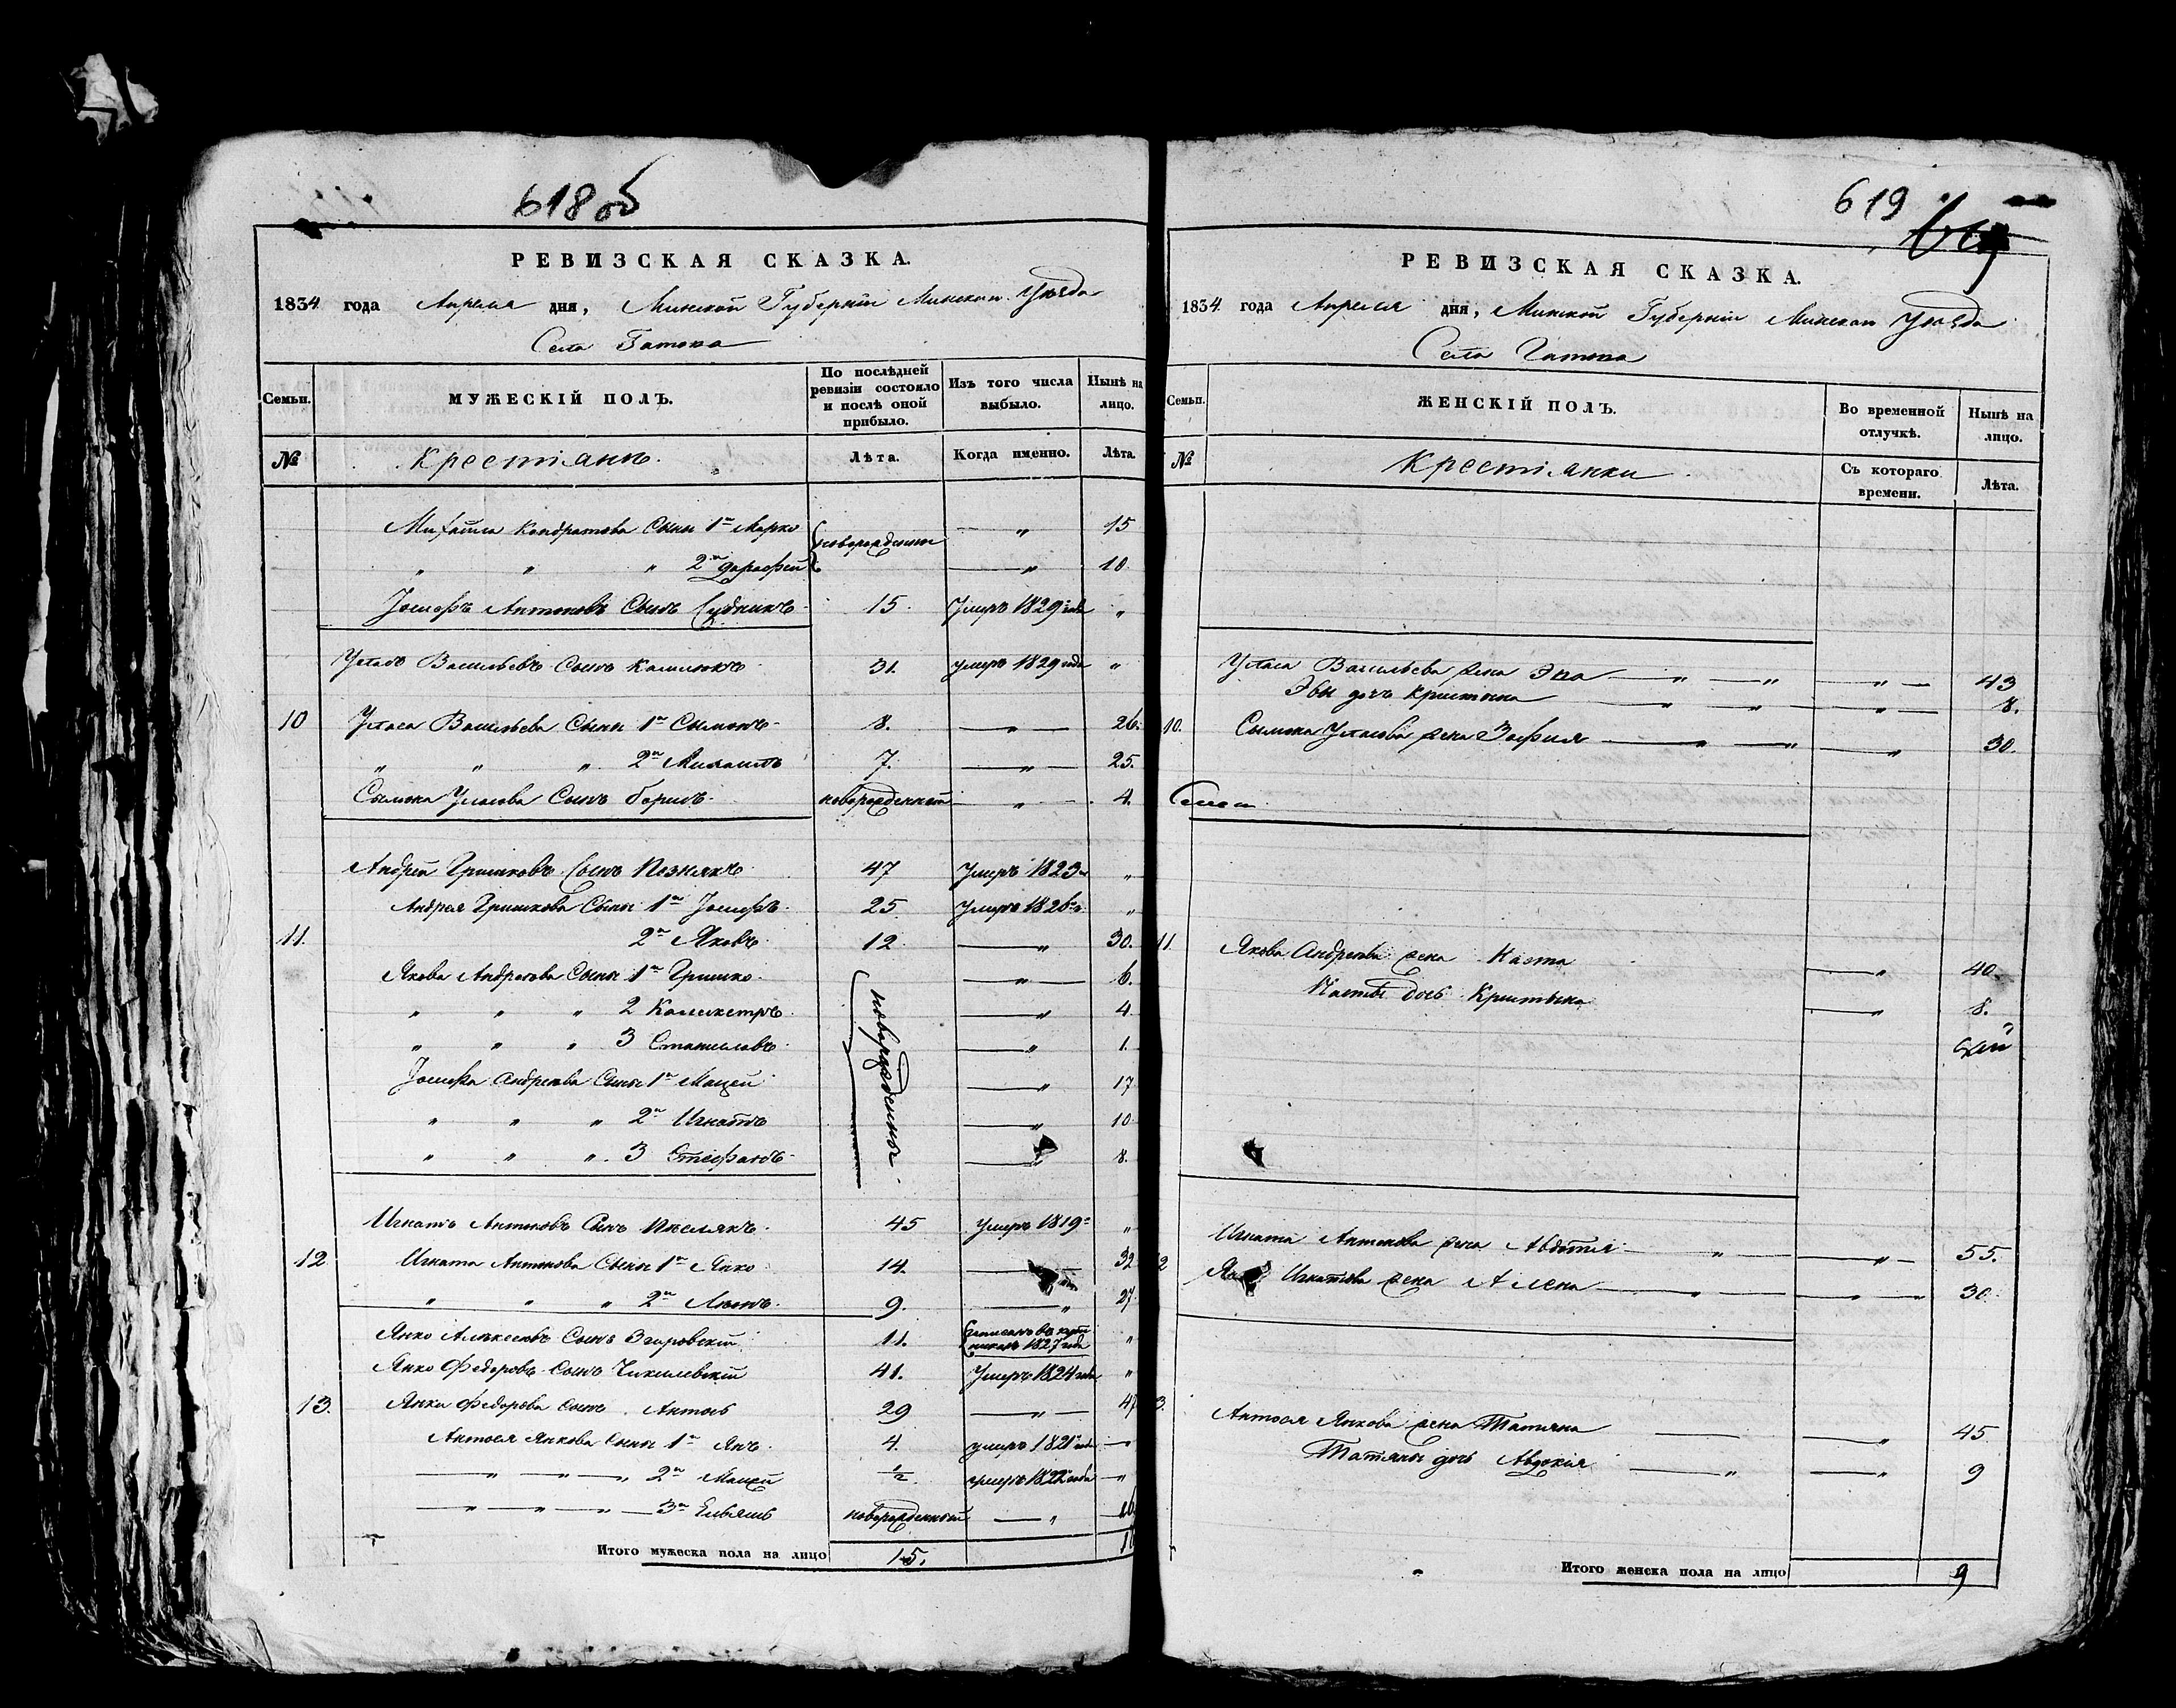 618 об
РЕВИЗСКАЯ СКАЗКА.
1834 года Апреля дня, Минской Губерніи Минскаго Уѣзда
Села Гатова
Семьи. МУЖЕСКІЙ ПОЛЪ. По послѣдней ревизіи состояло и послѣ оной прибыло. Изъ того числа выбыло. Нынѣ на лицо.
№ Крестіянъ Лѣта. Когда именно. Лѣта.
Михайла Кондратова Сыны 1й Марко новорожденны — " 15
" " " 2й дарофей — " 10
Іосифъ Антоновъ Сынъ Судникъ 15. Умеръ 1829 года "
Уласъ Васильевъ Сынъ 31. умеръ 1829 года "
10 Уласа Васильева Сыны 1й Сымонъ 8. — " — 26.
" " " 2й 7. — " — 25.
Сымона Уласова Сынъ борисъ новорожденный — " — 4.
Андрей Гришковъ Сынъ Познякъ 47 Умеръ 1823 "
Андрея Гришкова Сыны 1й Іосифъ 25 Умеръ 1826 г. "
11. 2й Яковъ 12 — " 30.
Якова Андреева Сыны 1й Гришко — " — 6.
" " " 2 новорожденны — " 4
" " " 3 Станиславъ — " 1.
Іосифа Андреева Сыны 1й Мацей — " 17
" " " 2й Игнатъ — " 10
" " " 3 Стефанъ — " 8.
Игнатъ Антоновъ Сынъ 45 Умеръ 1819 "
12 Игната Антонова Сыны 1й Янко 14. — 32
" " " 2й 9. — " 27
Янко Алексеевъ Сынъ Згировскій 11. 1827 года "
Янко Федоровъ Сынъ 41. Умеръ 1824 года "
13. Янка Федорова Сынъ Антось 29 — " — 47
Антося Янкова Сыны 1й Янъ 4. умеръ 1821 года — "
— " — " — " 2й Мацей ½ умеръ 1822 года — "
— " — " — " — 3й Ельяшъ новорожденный — "
Итого мужеска пола на лицо 15.
619
РЕВИЗСКАЯ СКАЗКА.
1834 года Апреля дня, Минской Губерніи Минскаго Уѣзда
Села Гатова
Семьи. ЖЕНСКІЙ ПОЛЪ. Во временной отлучкѣ. Нынѣ на лицо.
№ Крестіянки Съ котораго времени. Лѣта.
Уласа Васильева жена Эва — " — " — " — 43
Эвы дочь Кристина — " — " — " — 8.
10. Сымона Уласова жена Зофия — " — " — " 30.
11. Якова Андреева жена Наста — " 40
Насты дочь Кристина — " 8.
Игната Антонова жена Авдотия — " — " — 55.
Игнатова жена Алена — " — " — 30
Антося Янкова жена Татяна — " 45
Татяны дочь Авдокия — " — " 9
Итого женска пола на лицо 9